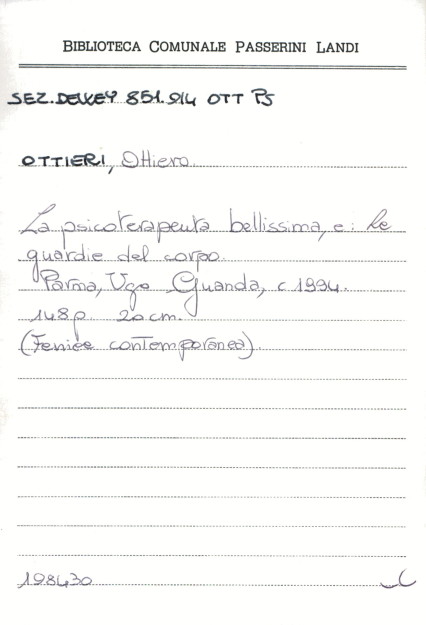 BIBLIOTECA COMUNALE PASSERINI LANDI
SEZ. DEWEY 851.914 OTT Ps
OTTIERI, Ottiero
La psicoterapeuta bellissima, e: Le
guardie del corpo.
Parma, Ugo Guanda, c 1994.
148 p. 20 cm.
(Fenice contemporanea).
198430